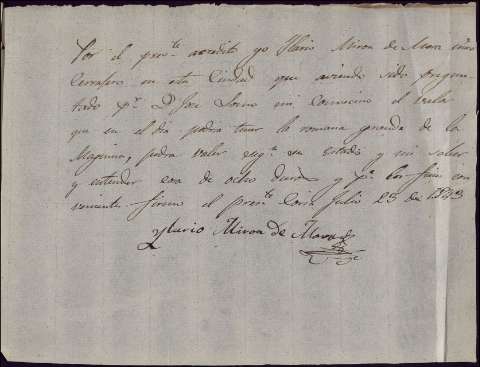 Por el pres.te acredito yo Ilario Miron de Mora
Cerrajero en esta Ciudad que aviendo sido pregun-
tado p.r D. Jose mi convecino el vala
que en el dia podra tener la romana prendida de la
Maquina, podra valer seg.n su estado y mi saber
y entender cosa de ocho duros y p.a los fines con
venientes firmo el presn.te Coria Julio 25 de 1843
Ylario Miron de Mora